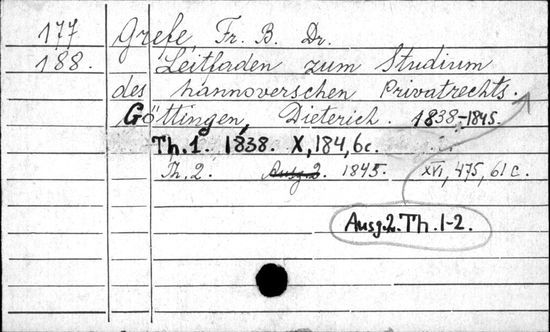 177 Grefe, Fr. B. Dr.
188. Leitfaden zum Studium
des hannoverschen Privatrechts.
Göttingen, Dieterich. 1838-1845.
Th.1. 1838. X, 184, 6 c.
Th. 2. Ausg.2. 1845. XVI, 475, 61 c.
Ausg.2. Th.1-2.